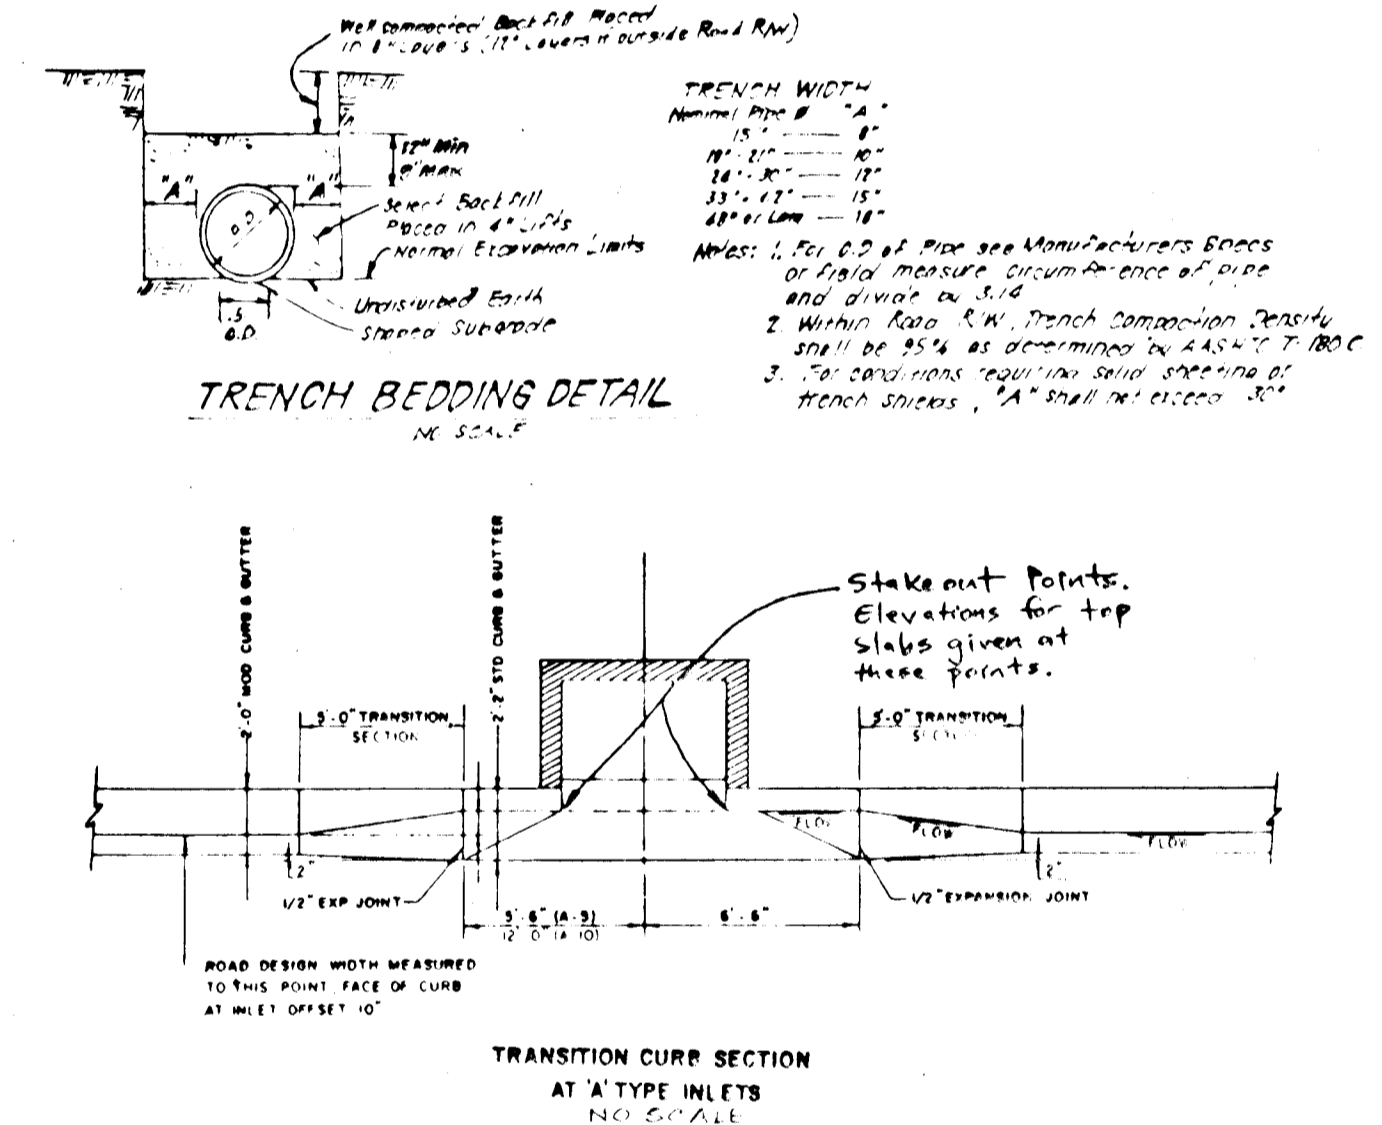 Well compacted Backfill Placed
in 8" Layers (12" Layers if outside Road R/W)
12" Min
9" Max
"A"
"A"
O.D.
Select Backfill
Placed in 4" Lifts
Normal Excavation Limits
Undisturbed Earth
Shaped Subgrade
.5
O.D.
TRENCH BEDDING DETAIL
NO SCALE
TRENCH WIDTH
Nominal Pipe Ø "A"
15" 8"
18" - 21" 10"
24" - 30" 12"
33" - 42" 15"
48" or 18"
Notes: 1. For O.D of Pipe see Manufacturers Specs
or field measure circumference of pipe
and divide by 3.14
2. Within Road R/W, Trench Compaction Density
shall be 95% as determined by AASHTO T-180 C
3. For conditions requiring solid sheeting or
trench shields, "A" shall not exceed 30"
2'-0" MOD CURB & GUTTER
2'-2" STD CURB & GUTTER
Stakeout Points.
Elevations for top
slabs given at
these points.
5'-0" TRANSITION
SECTION
5'-0" TRANSITION
SECTION
FLOW
FLOW
FLOW
2"
2"
1/2" EXP JOINT
1/2" EXPANSION JOINT
5'-6" (A-5)
12'-0" (A-10)
6'-6"
ROAD DESIGN WIDTH MEASURED
TO THIS POINT, FACE OF CURB
AT INLET OFFSET 10"
TRANSITION CURB SECTION
AT 'A' TYPE INLETS
NO SCALE